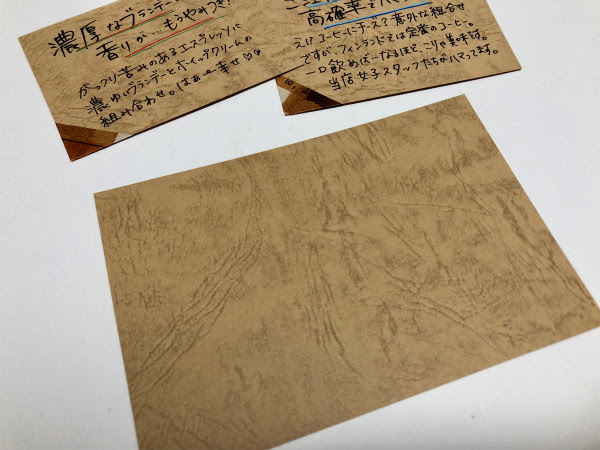 濃厚なブランデー
香りが…もうやみつき!
がっつり苦みのあるエスプレッソに
濃ゆいブランデーとホイップクリームの
組み合わせ。はぁ〜幸せ♡♡
高確率でハマ
え!?コーヒーにチーズ?意外な組合せ
ですが、フィンランドでは定番のコーヒー。
一口飲めば…なるほど、こりゃ美味です。
当店女子スタッフたちがハマってます。